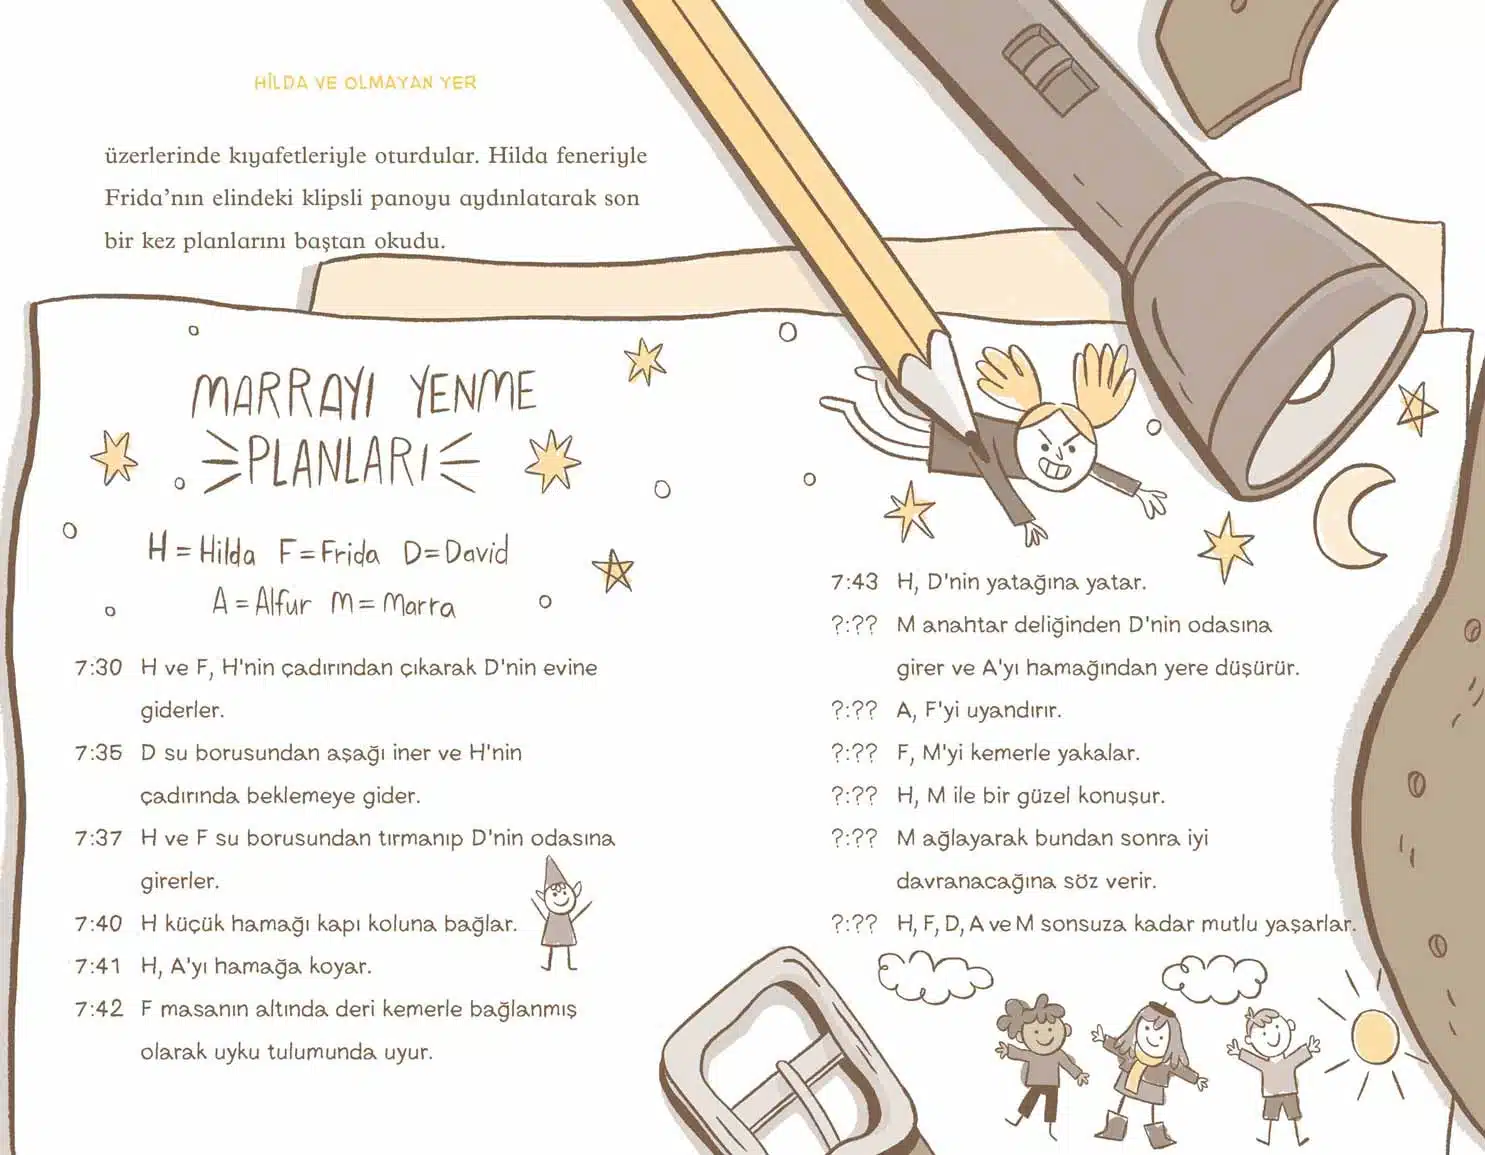 HİLDA VE OLMAYAN YER
üzerlerinde kıyafetleriyle oturdular. Hilda feneriyle
Frida’nın elindeki klipsli panoyu aydınlatarak son
bir kez planlarını baştan okudu.
MARRAYI YENME
PLANLARI
H = Hilda F = Frida D = David
A = Alfur M = Marra
7:30 H ve F, H'nin çadırından çıkarak D'nin evine
giderler.
7:35 D su borusundan aşağı iner ve H'nin
çadırında beklemeye gider.
7:37 H ve F su borusundan tırmanıp D'nin odasına
girerler.
7:40 H küçük hamağı kapı koluna bağlar.
7:41 H, A'yı hamağa koyar.
7:42 F masanın altında deri kemerle bağlanmış
olarak uyku tulumunda uyur.
7:43 H, D'nin yatağına yatar.
?:?? M anahtar deliğinden D'nin odasına
girer ve A'yı hamağından yere düşürür.
?:?? A, F'yi uyandırır.
?:?? F, M'yi kemerle yakalar.
?:?? H, M ile bir güzel konuşur.
?:?? M ağlayarak bundan sonra iyi
davranacağına söz verir.
?:?? H, F, D, A ve M sonsuza kadar mutlu yaşarlar.